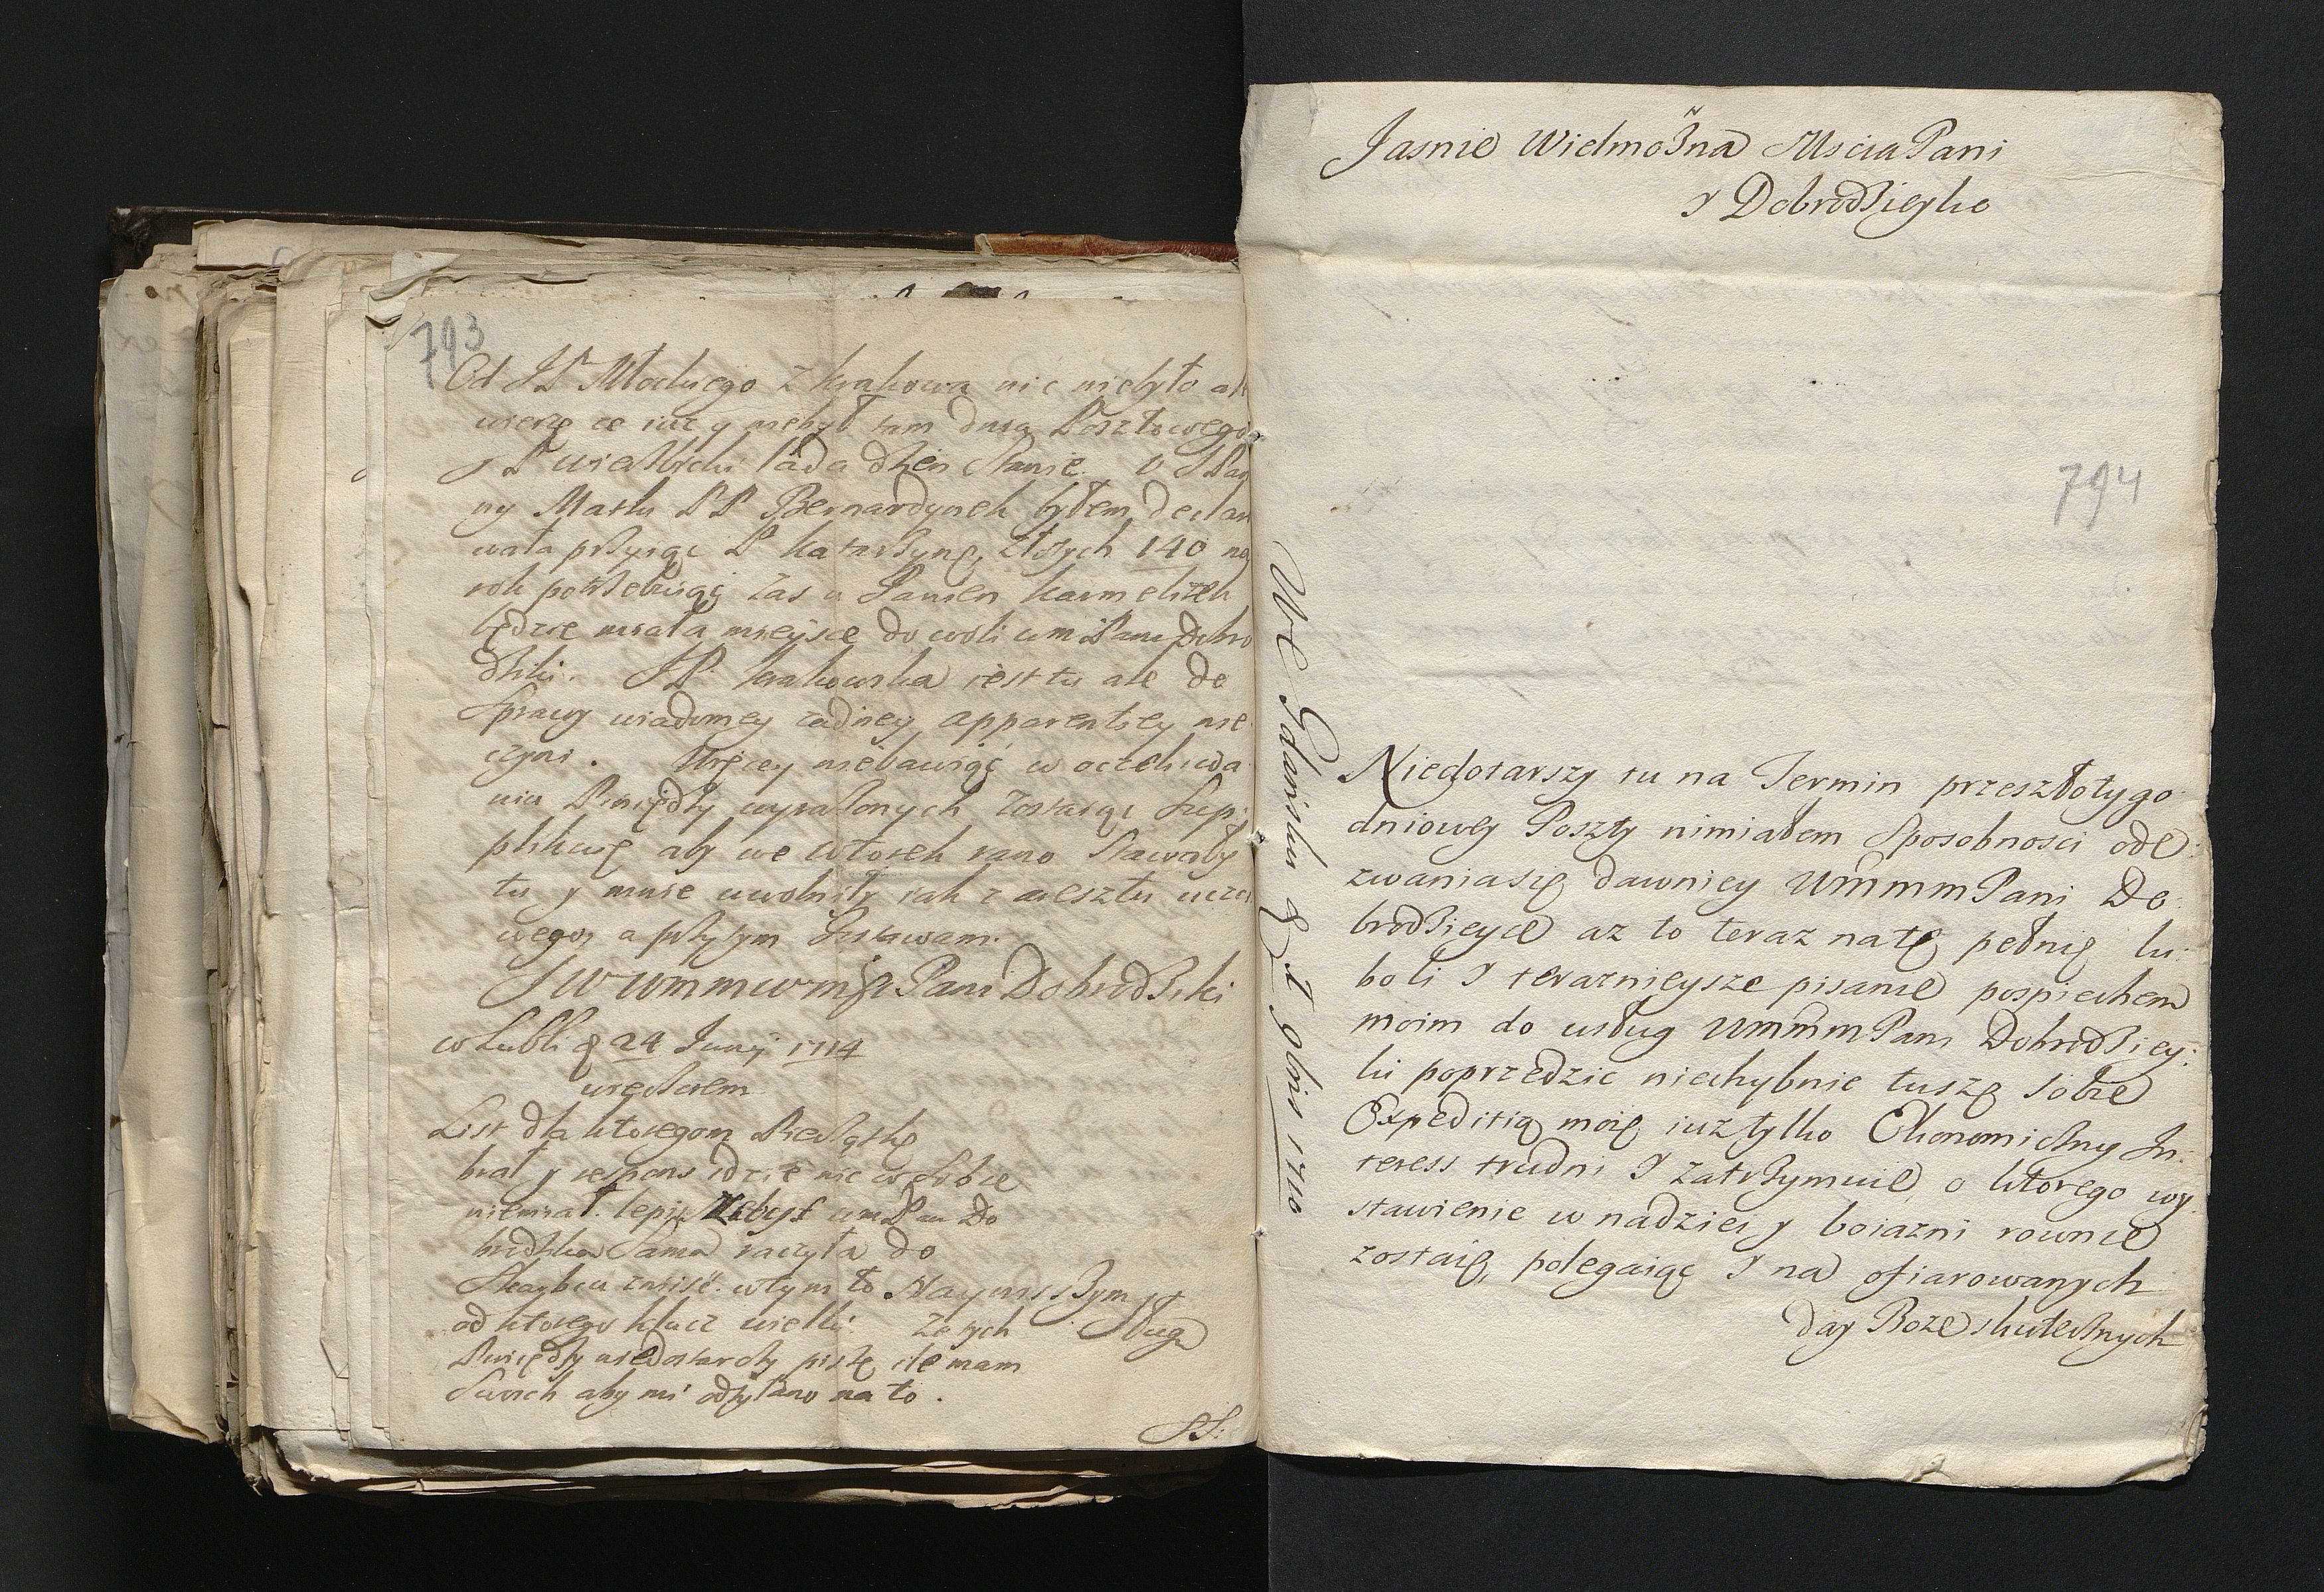 793
Od JP Młockiego z Krakowa nic niebyło ale
wierzę ze iuz y niebył tam dnia Posztowego
JP Wielbicki lada dzien stanie. U JPan
ny Matki PP Bernardynek byłem declaro
wała przyiąc P Katarzynę, złotych 140 na
rok potrzebuiąc zas u Panien Karmelitek
będzie miała mieysce do woli wm Pani Dobro
dziki. JP Krakowska iest tu ale do
Sprawy wiadomey zadney apparentiey nie
czyni. Więcey niebawiąc w oczekiwa
niu Pieniędzy wyrazonych zostaiąc Sup:
plikuię aby we wtorek rano stawały
tu y mnie uwolniły iak z aresztu
wego, a przytym zostawam.
JW WMM WM Pani Dobrodziki
w Lubli d 24 Junij 1714
wieczorem
List dla ktoregom Pieczątkę
brał y respons idzie nic w sobie
niemiał. lepiey zebyś wm Pani Do
brodzika Sama raczyła do
od ktorego klucz wielki. Za tych
Sługa
Pieniędzy niedostarczy piszę ile mam
Swoich aby mi odżyłano na to.
SS:
Jasnie Wielmożna Mscia Pani
y Dobrodzieyko
794
We Gdansku d 1 9bris 1710
Niedotarszy tu na Termin przeszłotygo
dniowey Poszty nimiałem sposobnosci ode:
zwaniasię dawniey WMMM Pani Do:
brodzieyce az to teraz natę pełnię lu:
bo li y terazniejsze pisanie pospiechem
moim do usług WMMM Pani Dobrodziey:
ki poprzedzic niechybnie tuszę sobie
Expeditią moię iuz tylko Ekonomiczny In:
teress trudni y zatrzymuie, o ktorego wy
stawienie w nadziei y boiazni rownie
zostaię, polegaiąc y na ofiarowanych
day Boze skutecznych